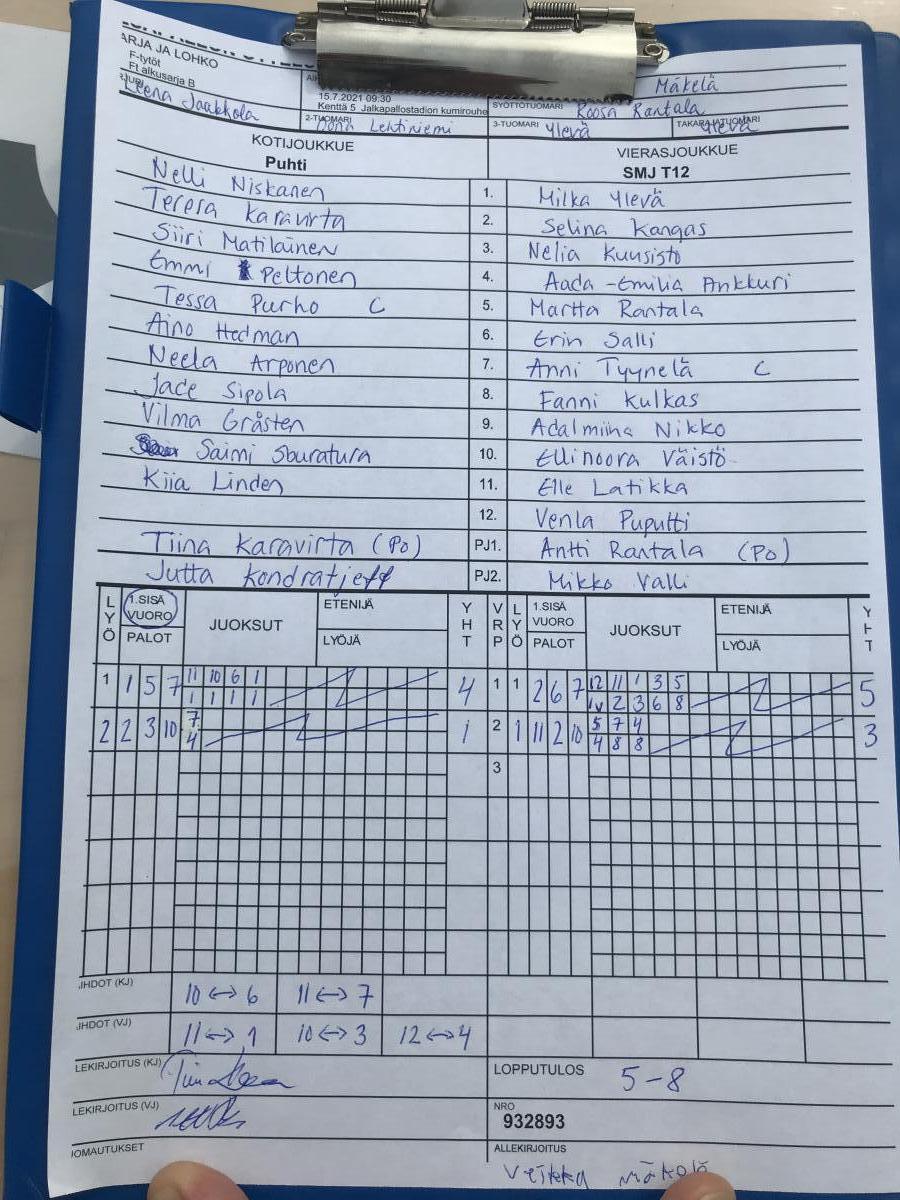 ARJA JA LOHKO
F-tytöt
Ft alkusarja B
15.7.2021 09:30
Kenttä 5 Jalkapallostadion kumirouhe
Mäkelä
Leena Jaakkola
2-TUOMARI Lehtiniemi
SYÖTTÖTUOMARI Roosa Rantala
3-TUOMARI Ylevä
TAKARAJATUOMARI Ylevä
KOTIJOUKKUE VIERASJOUKKUE
Puhti SMJ T12
Nelli Niskanen 1. Milka Ylevä
Teresa Karavirta 2. Selina Kangas
Siiri Matilainen 3. Nelia Kuusisto
Emmi Peltonen 4. Aada-Emilia Ankkuri
Tessa Purho C 5. Martta Rantala
Aino Hedman 6. Erin Salli
Neela Arponen 7. Anni Tyynelä C
Jade Sipola 8. Fanni Kulkas
Vilma Gråsten 9. Adalmiina Nikko
Saimi Sburatura 10. Ellinoora Väistö
Kiia Linden 11. Elle Latikka
12. Venla Puputti
Tiina Karavirta (Po) PJ1. Antti Rantala (Po)
Jutta Kondratjeff PJ2. Mikko Valli
LYÖ 1.SISÄ VUORO PALOT JUOKSUT ETENIJÄ LYÖJÄ YHT VRP LYÖ 1.SISÄ VUORO PALOT JUOKSUT ETENIJÄ LYÖJÄ YHT
1 1 5 7 11 10 6 1 4 1 1 2 6 7 12 11 1 3 5 5
1 1 1 1 1v 2 3 6 8
2 2 3 10 7 1 2 1 11 2 10 5 7 4 3
4 4 8 8
3
IHDOT (KJ) 10↔6 11↔7
IHDOT (VJ) 11↔1 10↔3 12↔4
LEKIRJOITUS (KJ) LOPPUTULOS 5-8
LEKIRJOITUS (VJ) NRO
932893
IOMAUTUKSET ALLEKIRJOITUS
Veikka Mäkelä